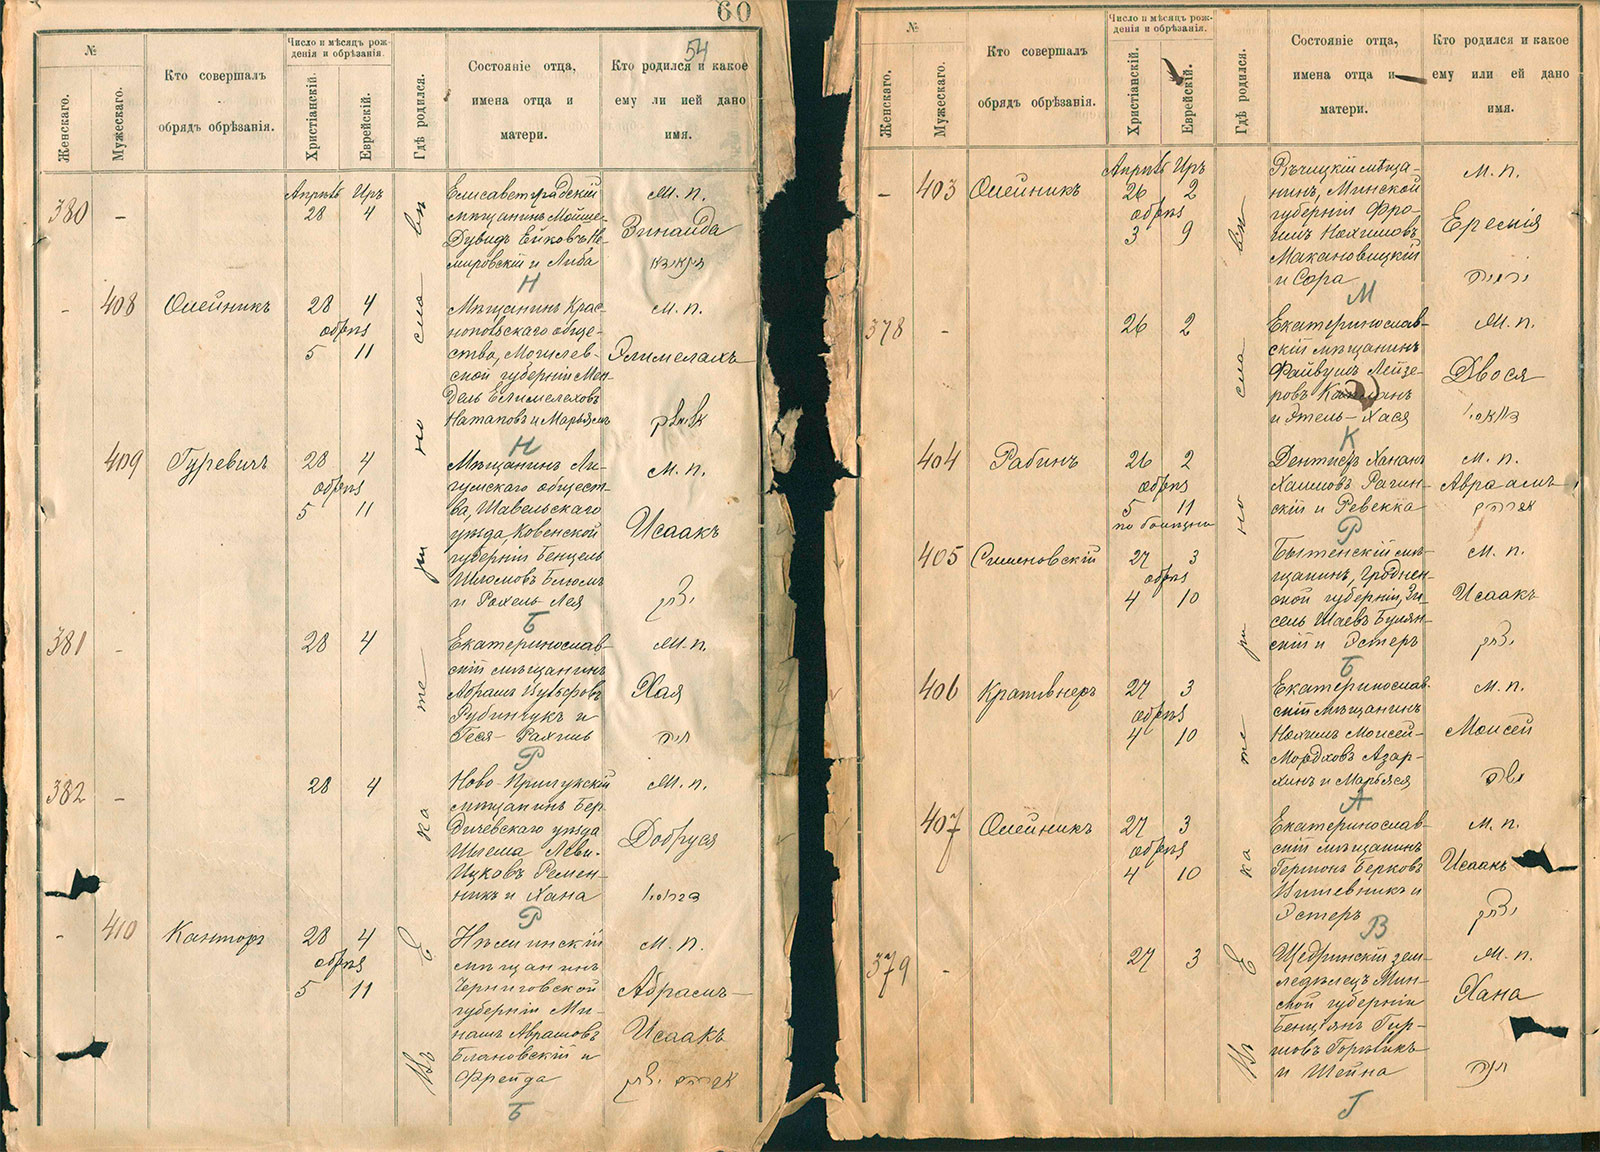 60
54
№
Женскаго.
Мужескаго.
Кто совершалъ
обрядъ обрѣзанія.
Число и мѣсяцъ рож-
денія и обрѣзанія.
Христіанскій.
Еврейскій.
Гдѣ родился.
Состояніе отца,
имена отца и
матери.
Кто родился и какое
ему ли ией дано
имя.
380
-
Апрѣль Иръ
28 4
Елисаветградскій
мѣщанинъ Мойше-
Дувидъ
мировскій и Либа
м. п.
Зинаида
Н
-
408
Олейникъ
28 4
обрѣз
5 11
Мѣщанинъ Крас-
нопольскаго обще-
ства, Могилев-
ской губерніи Мен-
дель Елимелеховъ
Натаповъ и Марьясь
м. п.
Элимелахъ
Н
409
Гуревичъ
28 4
обрѣз
5 11
Мѣщанинъ Ли-
гумскаго общест-
ва, Шавельскаго
уѣзда, Ковенской
губерніи Бенцель
Шломовъ Блюмъ
и Рохель-Лея
м. п.
Исаакъ
יצחק
Б
381
-
28 4
Екатеринослав-
скій мѣщанинъ
Абрамъ
Рубинчукъ и
Геся-Рахиль
м. п.
Хая
חיה
Р
382
-
28 4
Ново-Прилукскій
мѣщанинъ Бер-
дичевскаго уѣзда
Шлема Леви-
Ицковъ Ремен-
никъ и Хана
м. п.
Добруся
Р
-
410
Канторъ
28 4
обрѣз
5 11
Нѣжинскій
мѣщанинъ
Черниговской
губерніи Ми-
нашъ Аврамовъ
Блановскій и
Фрейда
м. п.
Абрамъ-
Исаакъ
אברהם יצחק
Б
Въ Екатеринославѣ
№
Женскаго.
Мужескаго.
Кто совершалъ
обрядъ обрѣзанія.
Число и мѣсяцъ рож-
денія и обрѣзанія.
Христіанскій.
Еврейскій.
Гдѣ родился.
Состояніе отца,
имена отца и
матери.
Кто родился и какое
ему или ей дано
имя.
-
403
Олейникъ
Апрѣль Иръ
26 2
обрѣз
3 9
Рѣчицкій мѣща-
нинъ, Минской
губерніи Фро-
имъ Нохимовъ
Макановицкій
и Сора
м. п.
Еремія
ירמיה
М
378
-
26 2
Екатеринослав-
скій мѣщанинъ
Файвушъ Лейзе-
ровъ
и Этель-Хася
м. п.
Двося
К
404
Рабинъ
26 2
обрѣз
5 11
по болѣзни
Дентистъ Хананъ
Хаимовъ Рагин-
скій и Ревекка
м. п.
Авраамъ
אברהם
Р
405
Симановскій
27 3
обрѣз
4 10
Бытенскій мѣ-
щанинъ, Гроднен-
ской губерніи, Зи-
сель Шаевъ Булян-
скій и Эстеръ
м. п.
Исаакъ
יצחק
Б
406
Крапивнеръ
27 3
обрѣз
4 10
Екатеринослав-
скій мѣщанинъ
Нохимъ Моисей-
Мордховъ Азар-
хинъ и Марьяся
м. п.
Моисей
משה
А
407
Олейникъ
27 3
обрѣз
4 10
Екатеринослав-
скій мѣщанинъ
Гершонъ Берковъ
и
Эстеръ
м. п.
Исаакъ
יצחק
В
379
-
27 3
Щедринскій зем-
ледѣлецъ Мин-
ской губерніи
Бенціянъ Гир-
шовъ Горѣликъ
и Шейна
м. п.
Хана
חנה
Г
Въ Екатеринославѣ